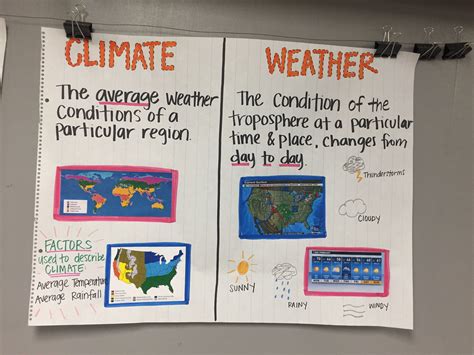 CLIMATE
The average weather
Conditions of a
particular region.
FACTORS
used to describe
CLIMATE:
Average Temperature
Average Rainfall
WEATHER
The Condition of the
troposphere at a particular
time & place, changes from
day to day.
Thunderstorms
CLOUDY
SUNNY
RAINY
WINDY